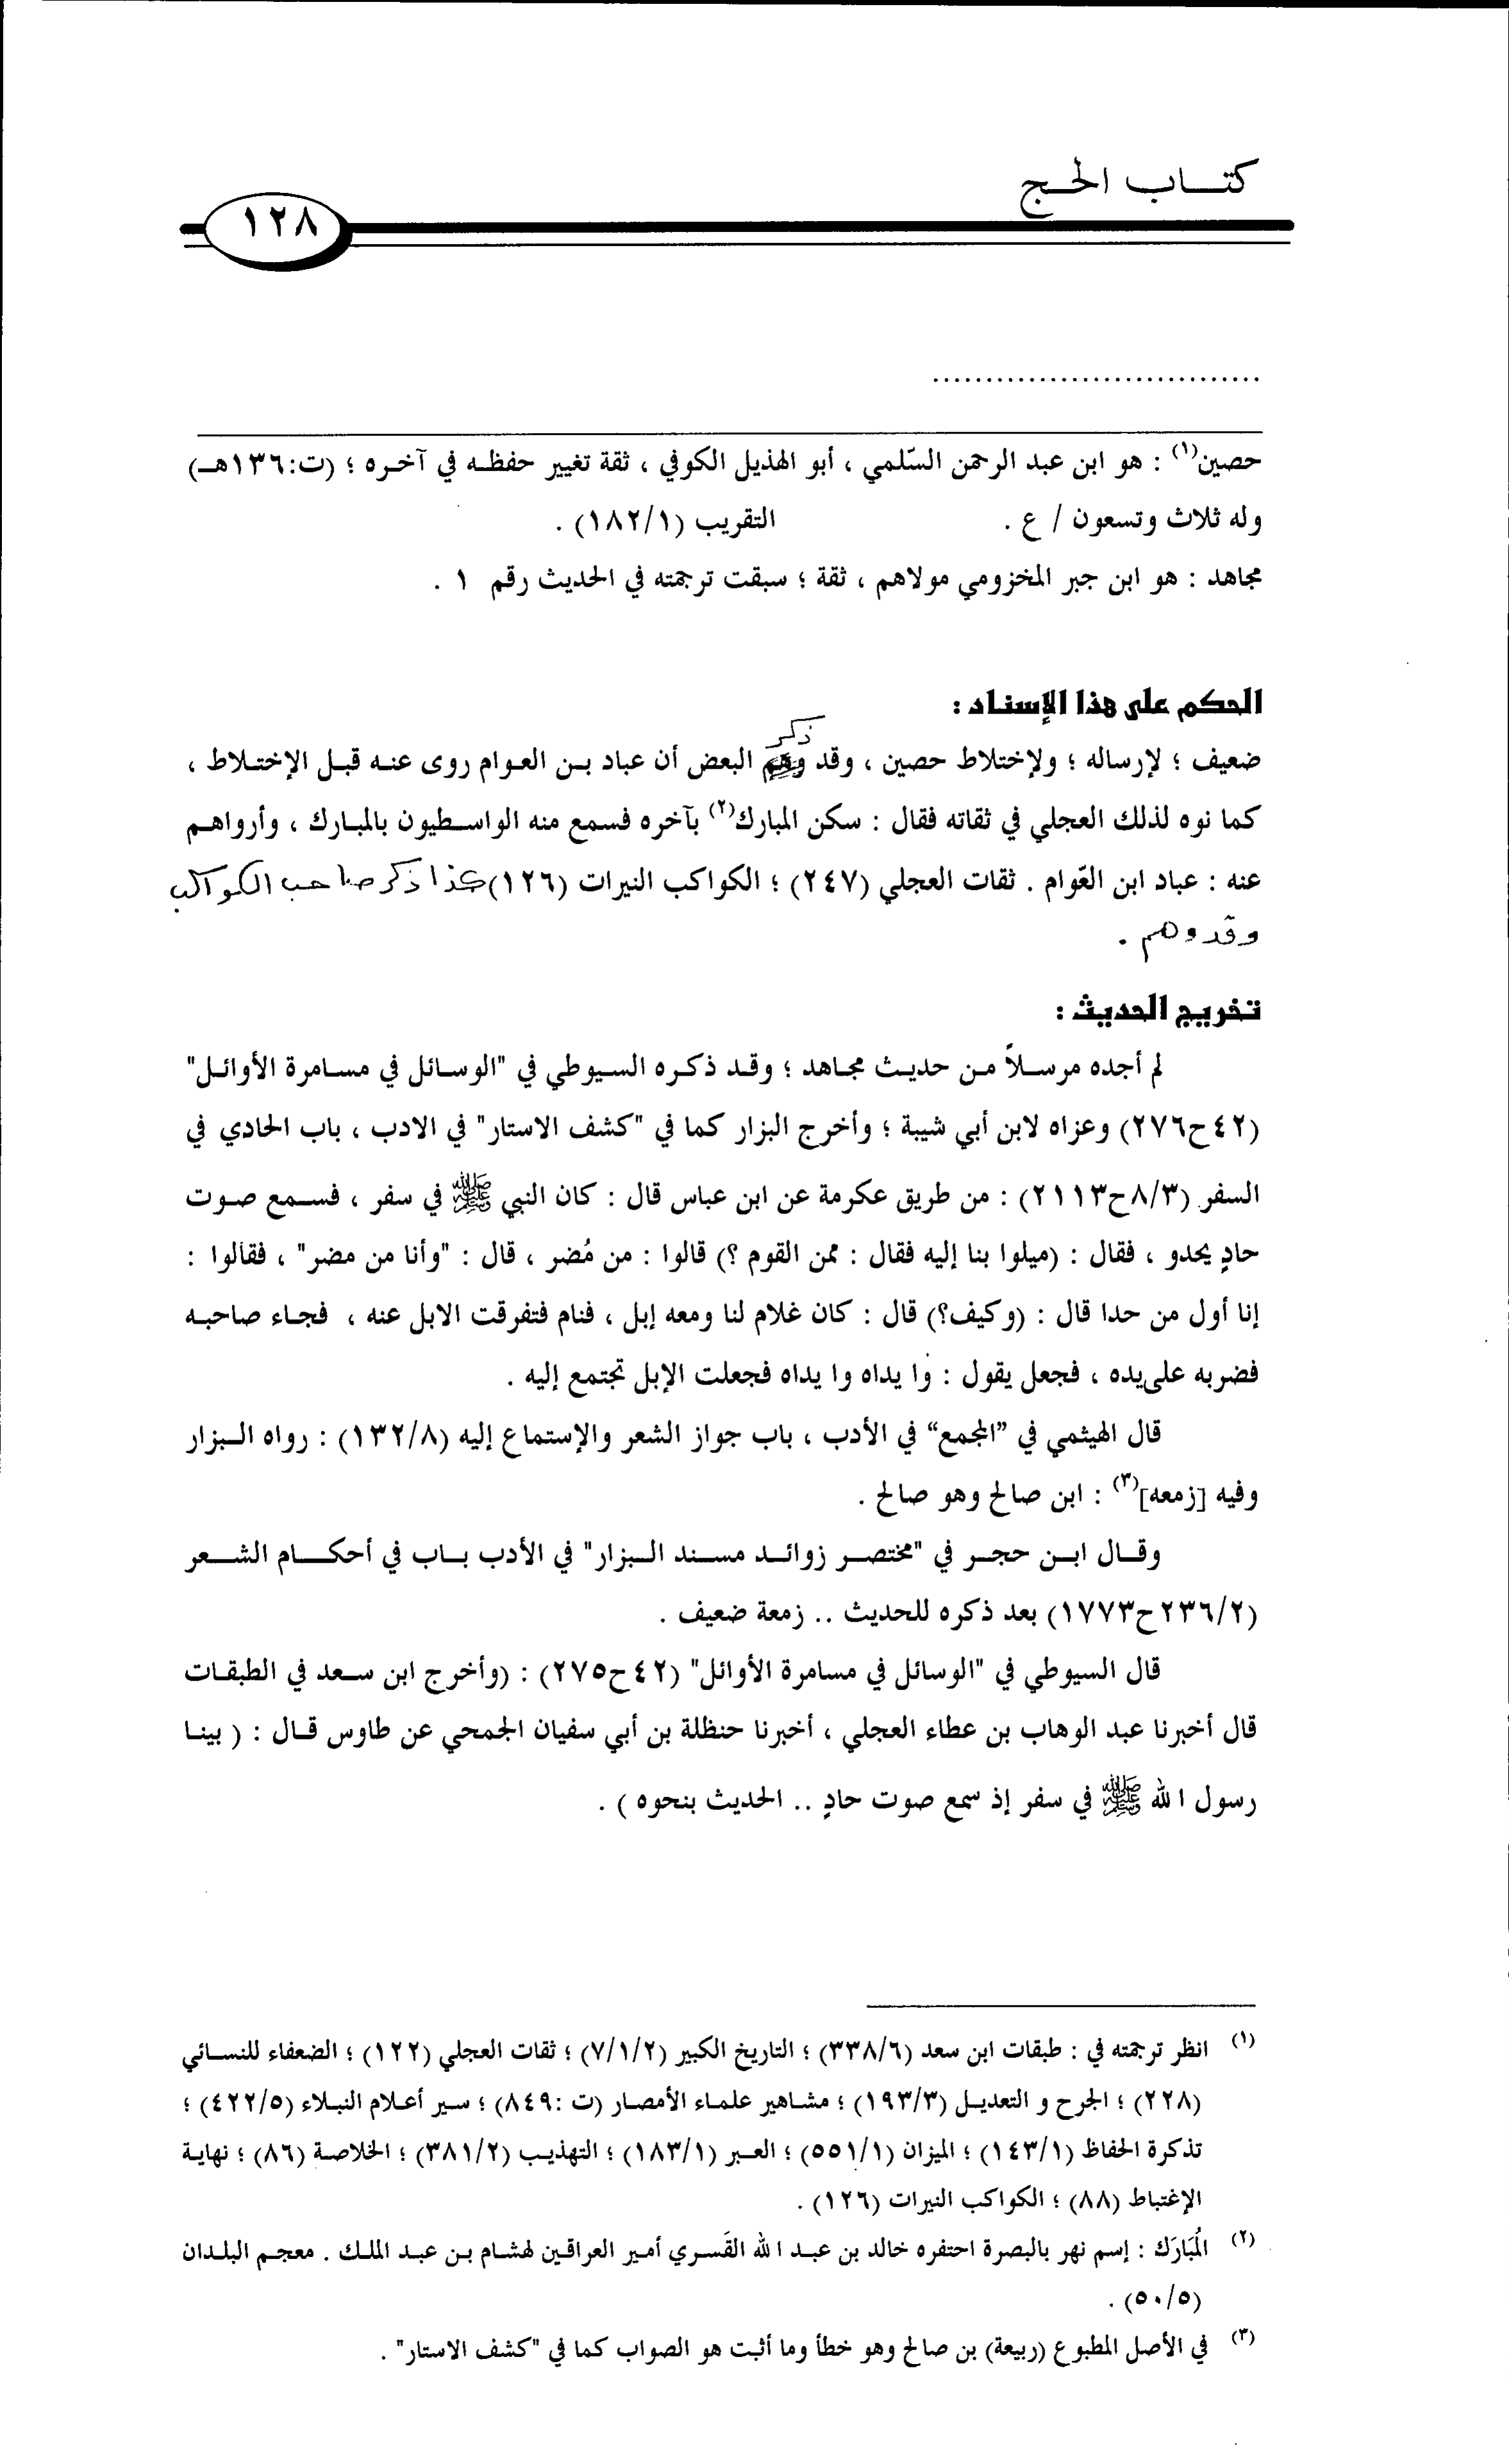 كتاب الحج
١٢٨
...............................
حصين(١) : هو ابن عبد الرحمن السّلمي ، أبو الهذيل الكوفي ، ثقة تغيير حفظه في آخره ؛ (ت:١٣٦هـ)
وله ثلاث وتسعون / ع . التقريب (١٨٢/١) .
مجاهد : هو ابن جبر المخزومي مولاهم ، ثقة ؛ سبقت ترجمته في الحديث رقم ١ .
الحكم على هذا الإسناد :
ضعيف ؛ لإرساله ؛ ولإختلاط حصين ، وقد ذكر البعض أن عباد بن العوام روى عنه قبل الإختلاط ،
كما نوه لذلك العجلي في ثقاته فقال : سكن المبارك(٢) بآخره فسمع منه الواسطيون بالمبارك ، وأرواهم
عنه : عباد ابن العّوام . ثقات العجلي (٢٤٧) ؛ الكواكب النيرات (١٢٦) كذا ذكر صاحب الكواكب
وقد وهم .
تخريج الحديث :
لم أجده مرسلاً من حديث مجاهد ؛ وقد ذكره السيوطي في "الوسائل في مسامرة الأوائل"
(٤٢ح٢٧٦) وعزاه لابن أبي شيبة ؛ وأخرج البزار كما في "كشف الاستار" في الادب ، باب الحادي في
السفر (٨/٣ح٢١١٣) : من طريق عكرمة عن ابن عباس قال : كان النبي ﷺ في سفر ، فسمع صوت
حادٍ يحدو ، فقال : (ميلوا بنا إليه فقال : ممن القوم ؟) قالوا : من مُضر ، قال : "وأنا من مضر" ، فقالوا :
إنا أول من حدا قال : (وكيف؟) قال : كان غلام لنا ومعه إبل ، فنام فتفرقت الابل عنه ، فجاء صاحبه
فضربه على يده ، فجعل يقول : وا يداه وا يداه فجعلت الإبل تجتمع إليه .
قال الهيثمي في ”المجمع“ في الأدب ، باب جواز الشعر والإستماع إليه (١٣٢/٨) : رواه البزار
وفيه [زمعه](٣) : ابن صالح وهو صالح .
وقال ابن حجر في "مختصر زوائد مسند البزار" في الأدب باب في أحكام الشعر
(٢٣٦/٢ح١٧٧٣) بعد ذكره للحديث .. زمعة ضعيف .
قال السيوطي في "الوسائل في مسامرة الأوائل" (٤٢ح٢٧٥) : (وأخرج ابن سعد في الطبقات
قال أخبرنا عبد الوهاب بن عطاء العجلي ، أخبرنا حنظلة بن أبي سفيان الجمحي عن طاوس قال : ( بينا
رسول الله ﷺ في سفر إذ سمع صوت حادٍ .. الحديث بنحوه ) .
(١) انظر ترجمته في : طبقات ابن سعد (٣٣٨/٦) ؛ التاريخ الكبير (٧/١/٢) ؛ ثقات العجلي (١٢٢) ؛ الضعفاء للنسائي
(٢٢٨) ؛ الجرح و التعديل (١٩٣/٣) ؛ مشاهير علماء الأمصار (ت :٨٤٩) ؛ سير أعلام النبلاء (٤٢٢/٥) ؛
تذكرة الحفاظ (١٤٣/١) ؛ الميزان (٥٥١/١) ؛ العبر (١٨٣/١) ؛ التهذيب (٣٨١/٢) ؛ الخلاصة (٨٦) ؛ نهاية
الإغتباط (٨٨) ؛ الكواكب النيرات (١٢٦) .
(٢) المُبَارَك : إسم نهر بالبصرة احتفره خالد بن عبد الله القَسري أمير العراقين لهشام بن عبد الملك . معجم البلدان
(٥٠/٥) .
(٣) في الأصل المطبوع (ربيعة) بن صالح وهو خطأ وما أثبت هو الصواب كما في "كشف الاستار" .